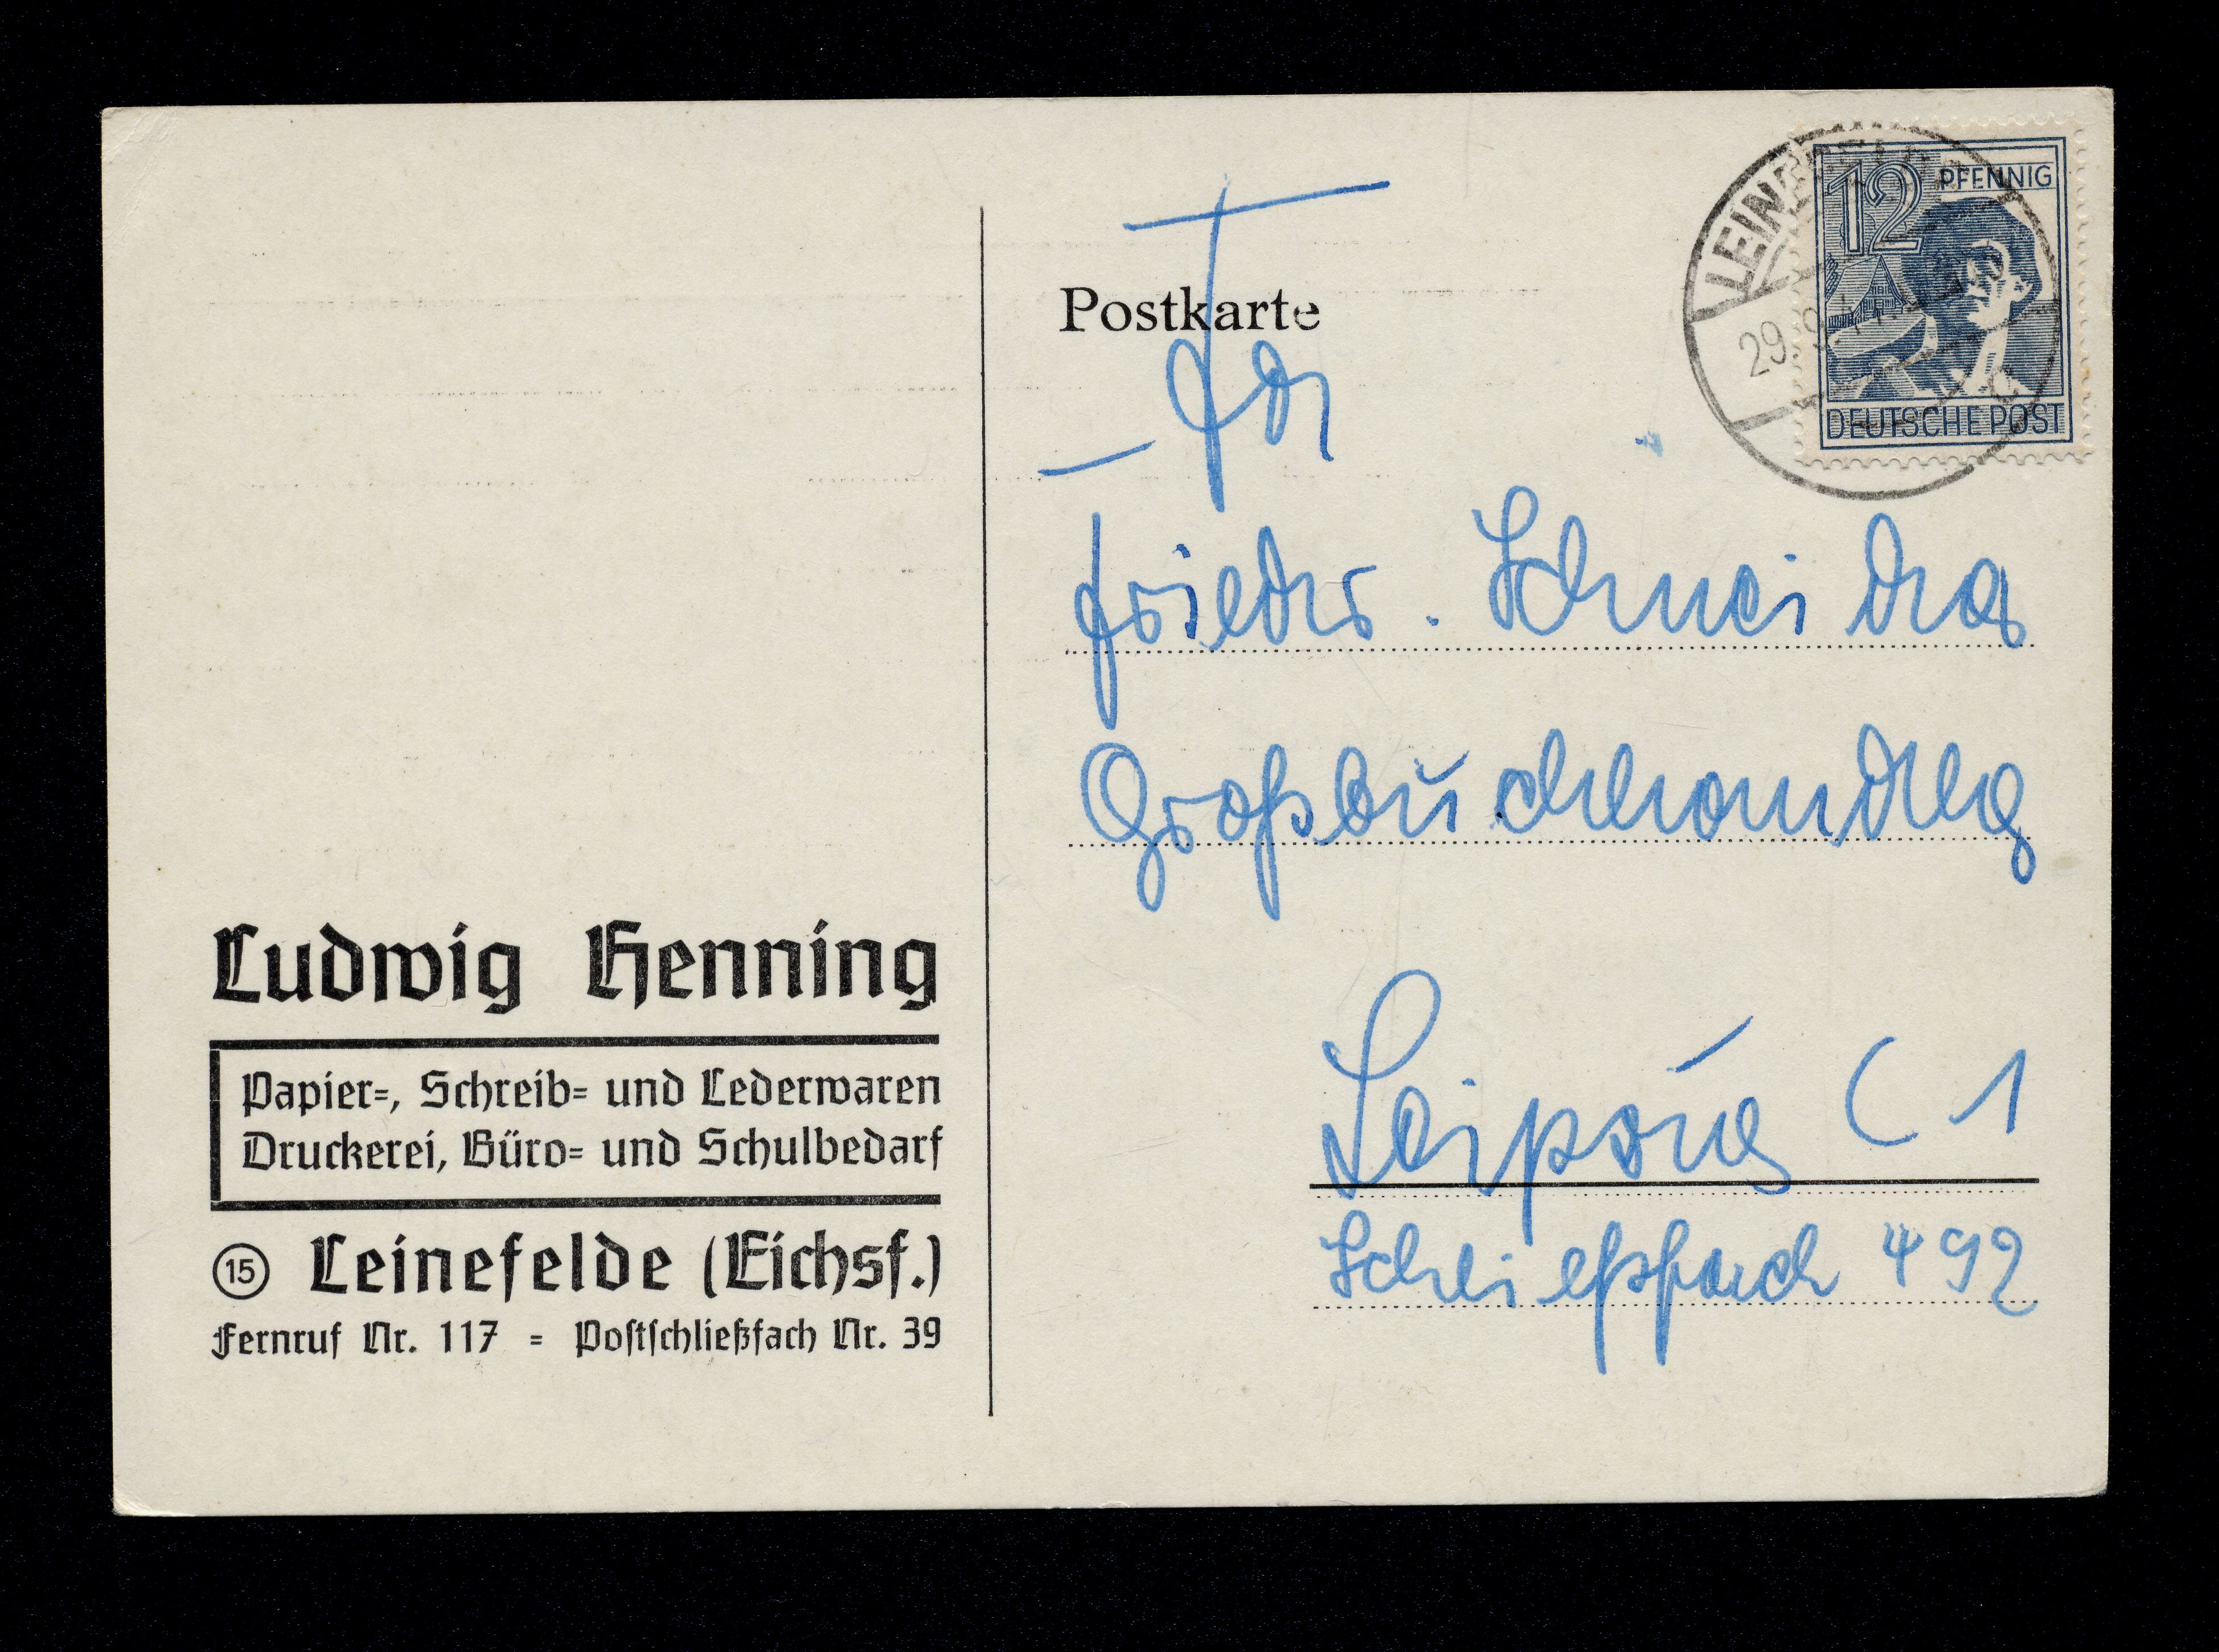 Postkarte
12 PFENNIG
DEUTSCHE POST
29.9.
Fa
Friedr. Schneider
Großbuchhandlg
Leipzig C 1
Schließfach 492
Ludwig Henning
Papier=, Schreib= und Lederwaren
Druckerei, Büro= und Schulbedarf
15 Leinefelde (Eichsf.)
Fernruf Nr. 117 = Poſtſchließfach Nr. 39